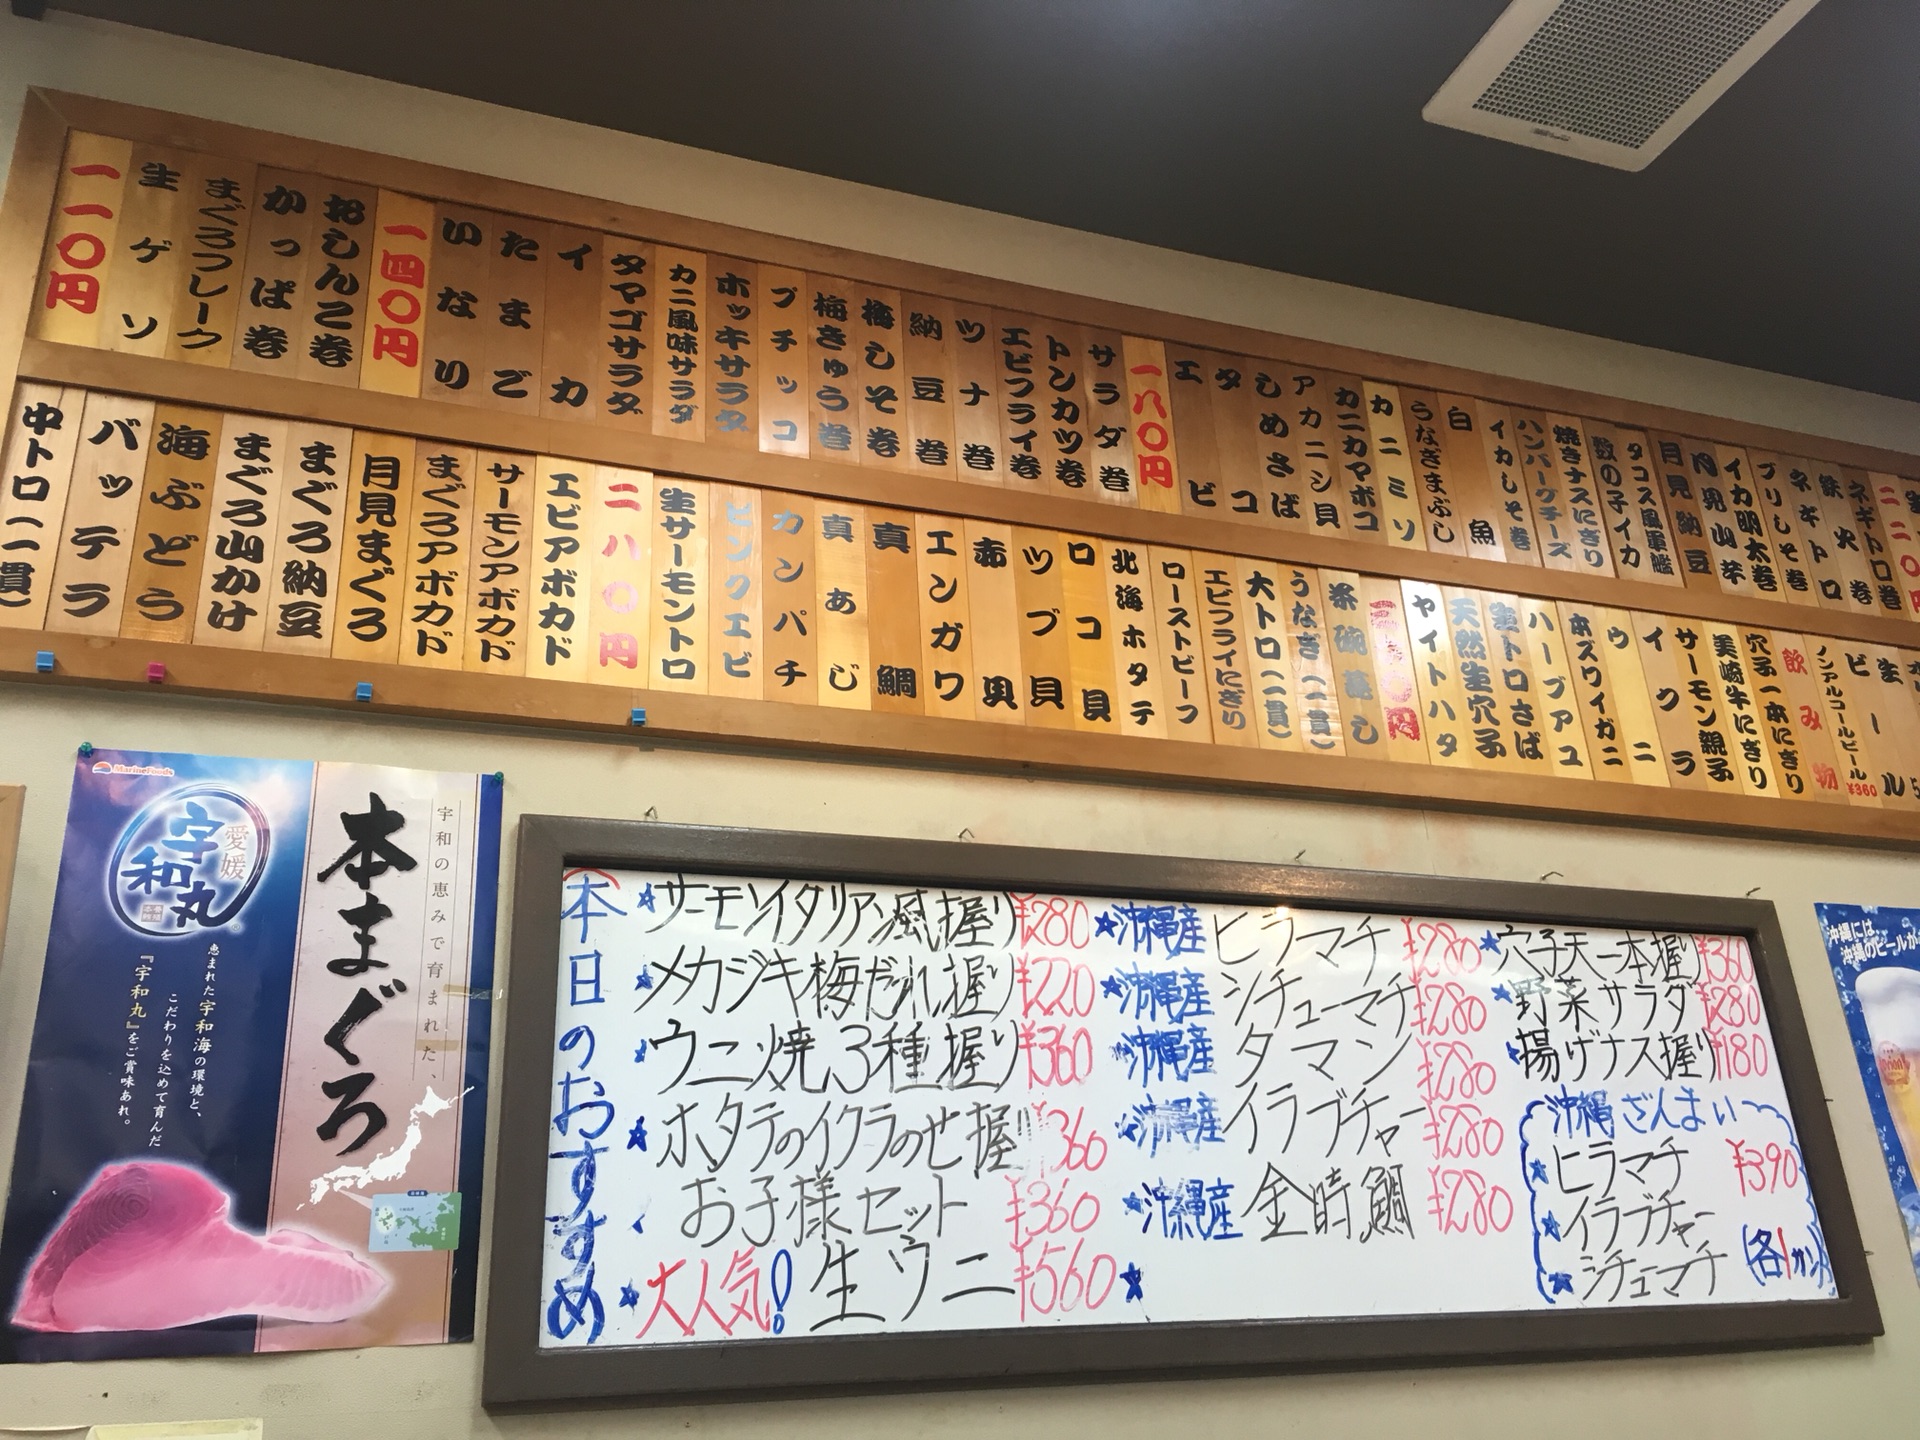 一一〇円
生ゲソ
まぐろフレーク
かっぱ巻
おしんこ巻
一四〇円
いなり
たまご
イカ
タマゴサラダ
カニ風味サラダ
ホッキサラダ
プチッコ
梅きゅう巻
梅しそ巻
納豆巻
ツナ巻
エビフライ巻
トンカツ巻
サラダ巻
一八〇円
エビ
タコ
しめさば
アカニシ貝
カニカマボコ
カニミソ
うなぎまぶし
白魚
イカしそ巻
ハンバーグチーズ
焼きナスにぎり
数の子イカ
タコス風軍艦
月見納豆
月見山芋
イカ明太巻
ブリしそ巻
ネギトロ
鉄火巻
ネギトロ巻
二二〇円
中トロ(一貫)
バッテラ
海ぶどう
まぐろ山かけ
まぐろ納豆
月見まぐろ
まぐろアボカド
サーモンアボカド
エビアボカド
二八〇円
生サーモントロ
ピンクエビ
カンパチ
真あじ
真鯛
エンガワ
赤貝
ツブ貝
ロコ貝
北海ホタテ
ローストビーフ
エビフライにぎり
大トロ(一貫)
うなぎ(一貫)
茶碗蒸し
ヤイトハタ
天然生穴子
生トロさば
ハーブアユ
本ズワイガニ
ウニ
イクラ
サーモン親子
美崎牛にぎり
穴子一本にぎり
飲み物
ノンアルコールビール ¥360
ビール
生
MarineFoods
愛媛
宇和丸
本まぐろ
宇和の恵みで育まれた、
恵まれた宇和海の環境と、
こだわりを込めて育んだ
『宇和丸』をご賞味あれ。
本日のおすすめ
★サーモンイタリアン風握り ¥280
★メカジキ梅だれ握り ¥220
★ウニ焼3種握り ¥360
★ホタテのイクラのせ握り ¥360
お子様セット ¥360
★大人気!生ウニ ¥560 ★
★沖縄産 ヒラマチ ¥280
★沖縄産 シチューマチ ¥280
★沖縄産 タマン ¥280
★沖縄産 イラブチャー ¥280
★沖縄産 金時鯛 ¥280
★穴子天一本握り ¥360
★野菜サラダ ¥280
★揚げナス握り ¥180
沖縄ざんまい
★ヒラマチ ¥390
★イラブチャー
★シチューマチ (各1カン)
沖縄には
沖縄のビールが